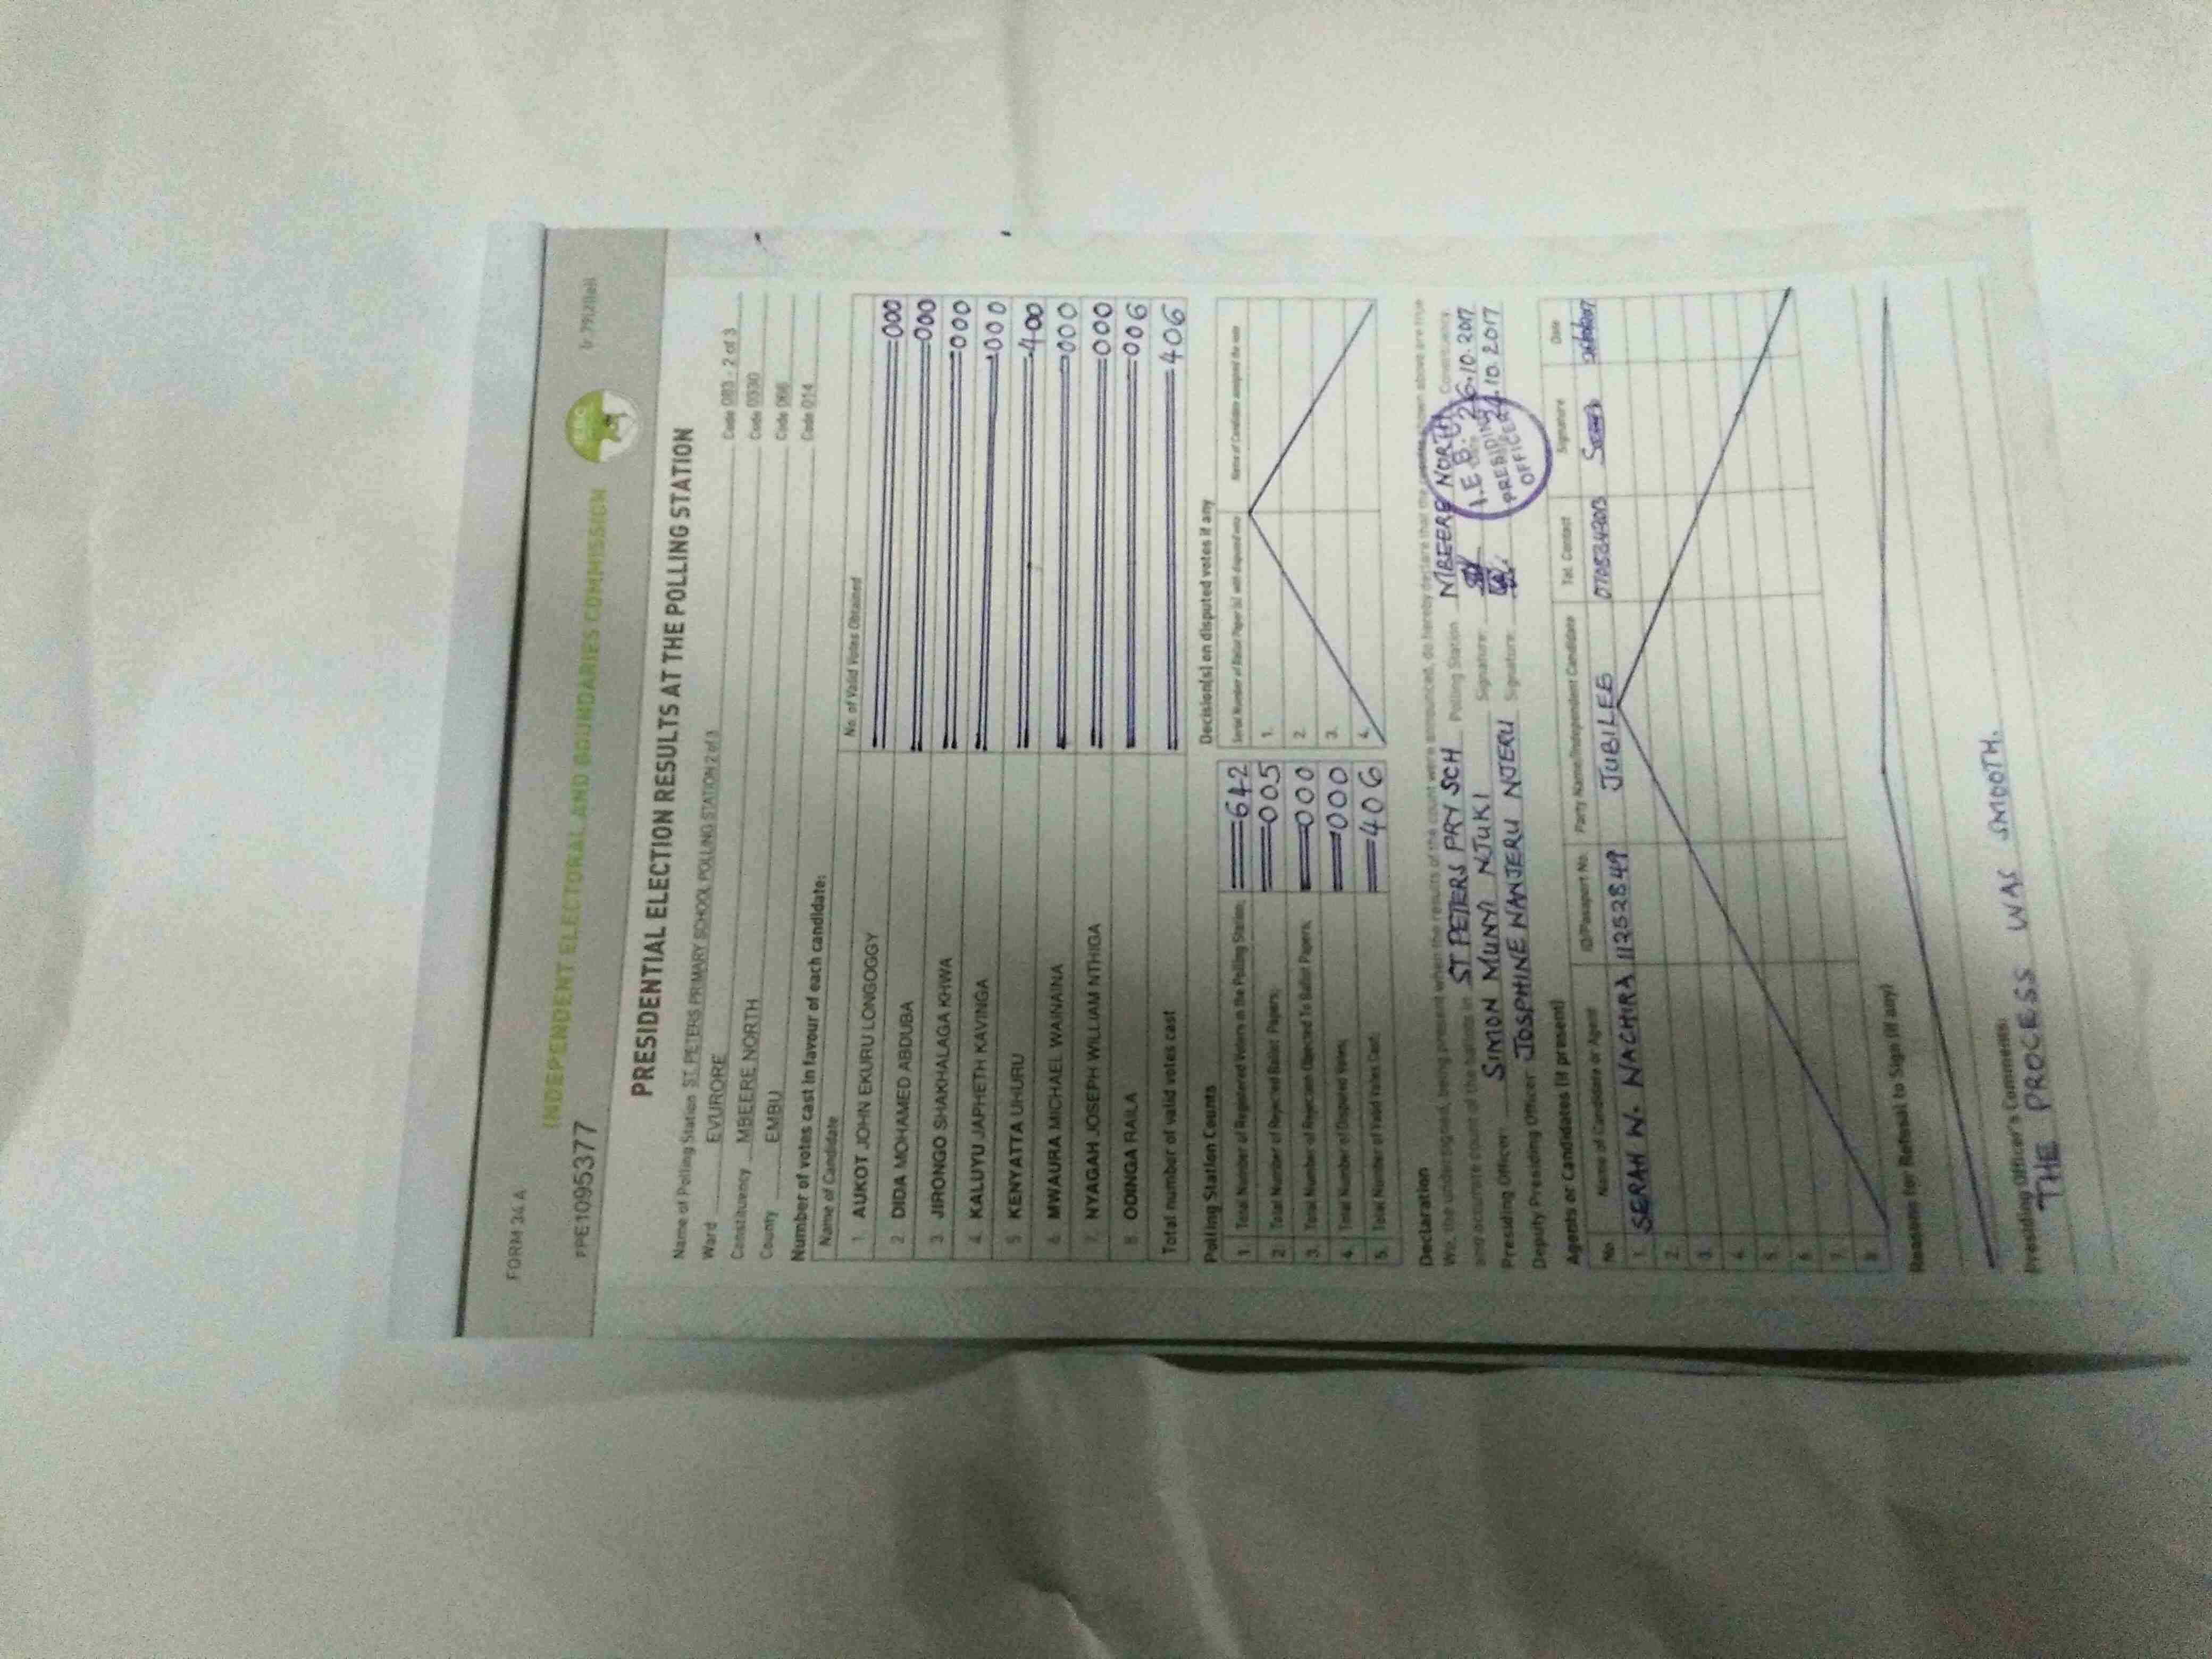 FORM 34A
INDEPENDENT ELECTORAL AND BOUNDARIES COMMISSION
PPE1095377
PRESIDENTIAL ELECTION RESULTS AT THE POLLING STATION
Name of Polling Station ST. PETERS PRIMARY SCHOOL POLLING STATION 2 of 3 Code 083 - 2 of 3
Ward EVURORE Code 0330
Constituency MBEERE NORTH Code 066
County EMBU Code 014
Number of votes cast in favour of each candidate:
Name of Candidate No. of Valid Votes Obtained
1. AUKOT JOHN EKURU LONGOGGY 000
2. DIDA MOHAMED ABDUBA 000
3. JIRONGO SHAKHALAGA KHWA 000
4. KALUYU JAPHETH KAVINGA 000
5. KENYATTA UHURU 400
6. MWAURA MICHAEL WAINAINA 000
7. NYAGAH JOSEPH WILLIAM NTHIGA 000
8. ODINGA RAILA 006
Total number of valid votes cast 406
Polling Station Counts
1. Total Number of Registered Voters in the Polling Station; 642
2. Total Number of Rejected Ballot Papers; 005
3. Total Number of Rejection Objected To Ballot Papers; 000
4. Total Number of Disputed Votes; 000
5. Total Number of Valid Votes Cast; 406
Decision(s) on disputed votes if any
Serial Number of Ballot Paper (s) with disputed vote Name of Candidate assigned the vote
1.
2.
3.
4.
Declaration
We, the undersigned, being present when the results of the count were announced, do hereby declare that the results shown above are true
and accurate count of the ballots in ST PETERS PRY SCH Polling Station MBEERE NORTH Constituency
Presiding Officer: SIMON MUNYI NJUKI Signature: 26.10.2017
Deputy Presiding Officer: JOSPHINE WANJERU NJERU Signature: 10.2017
PRESIDING
OFFICER
Agents or Candidates (if present)
No. Name of Candidate or Agent ID/Passport No. Party Name/Independent Candidate Tel. Contact Signature Date
1. SERAH N. 11252849 JUBILEE
2.
3.
4.
5.
6.
7.
8.
Reasons for Refusal to Sign (if any)
Presiding Officer's Comments:
THE PROCESS WAS SMOOTH.